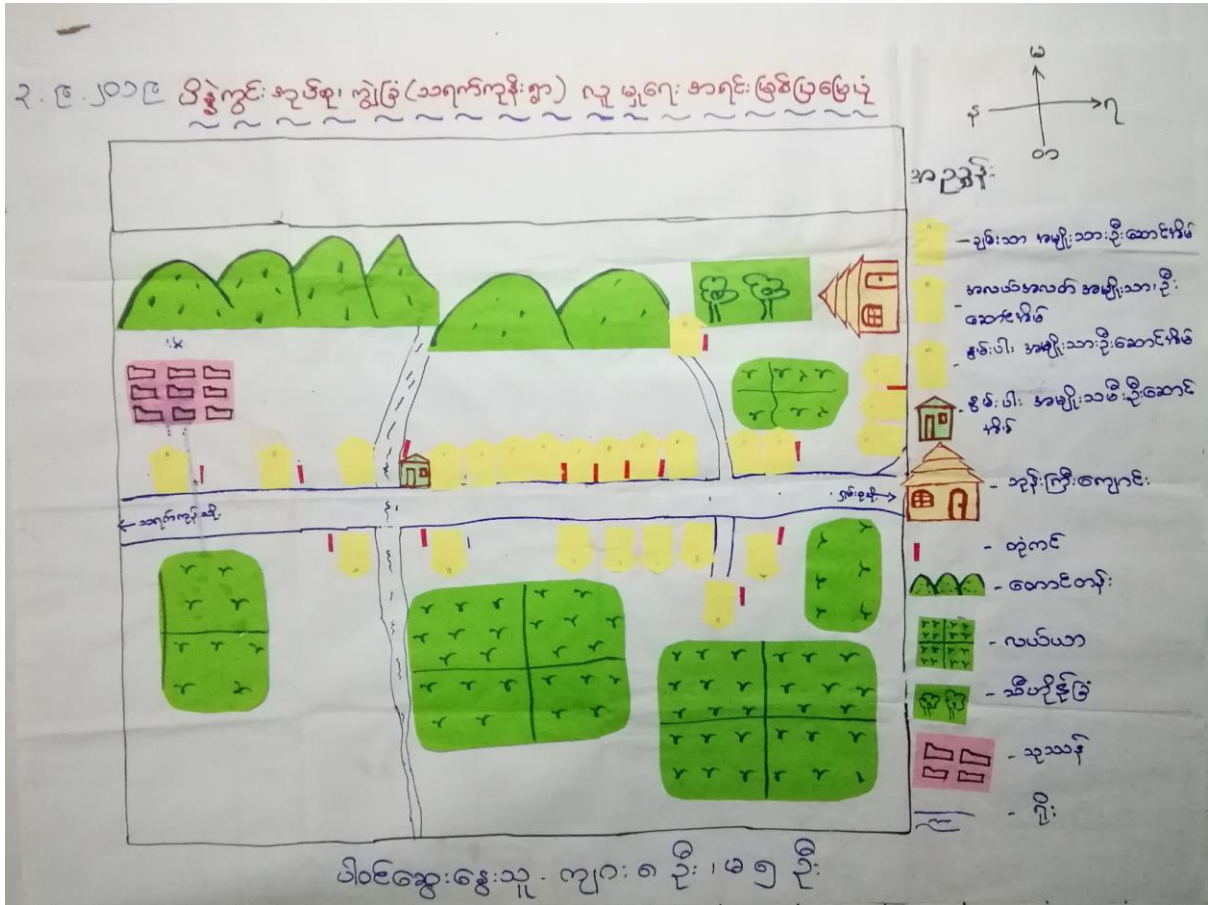 ၃.၉.၂၀၁၉ ပိန္နဲကွင်းအုပ်စု၊ ကျွဲခြံ(သရက်ကုန်းရွာ) လူမှုရေး အရင်းမြစ်ပြမြေပုံ
မ
န
ရ
တ
အညွှန်း
- ချမ်းသာ အမျိုးသားဦးဆောင်အိမ်
- အလယ်အလတ် အမျိုးသားဦးဆောင်အိမ်
- နွမ်းပါး အမျိုးသားဦးဆောင်အိမ်
- နွမ်းပါး အမျိုးသမီးဦးဆောင်အိမ်
- ဘုန်းကြီးကျောင်း
- တုံကင်
- တောင်တန်း
- လယ်ယာ
- သီဟိုဠ်ခြံ
- သုဿန်
- ရိုး
ပါဝင်ဆွေးနွေးသူ - ကျား ၈ ဦး၊ မ ၅ ဦး